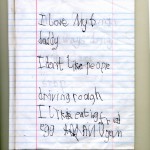 I love my
daddy
I dont like people
driving rough
I like eating fried
egg